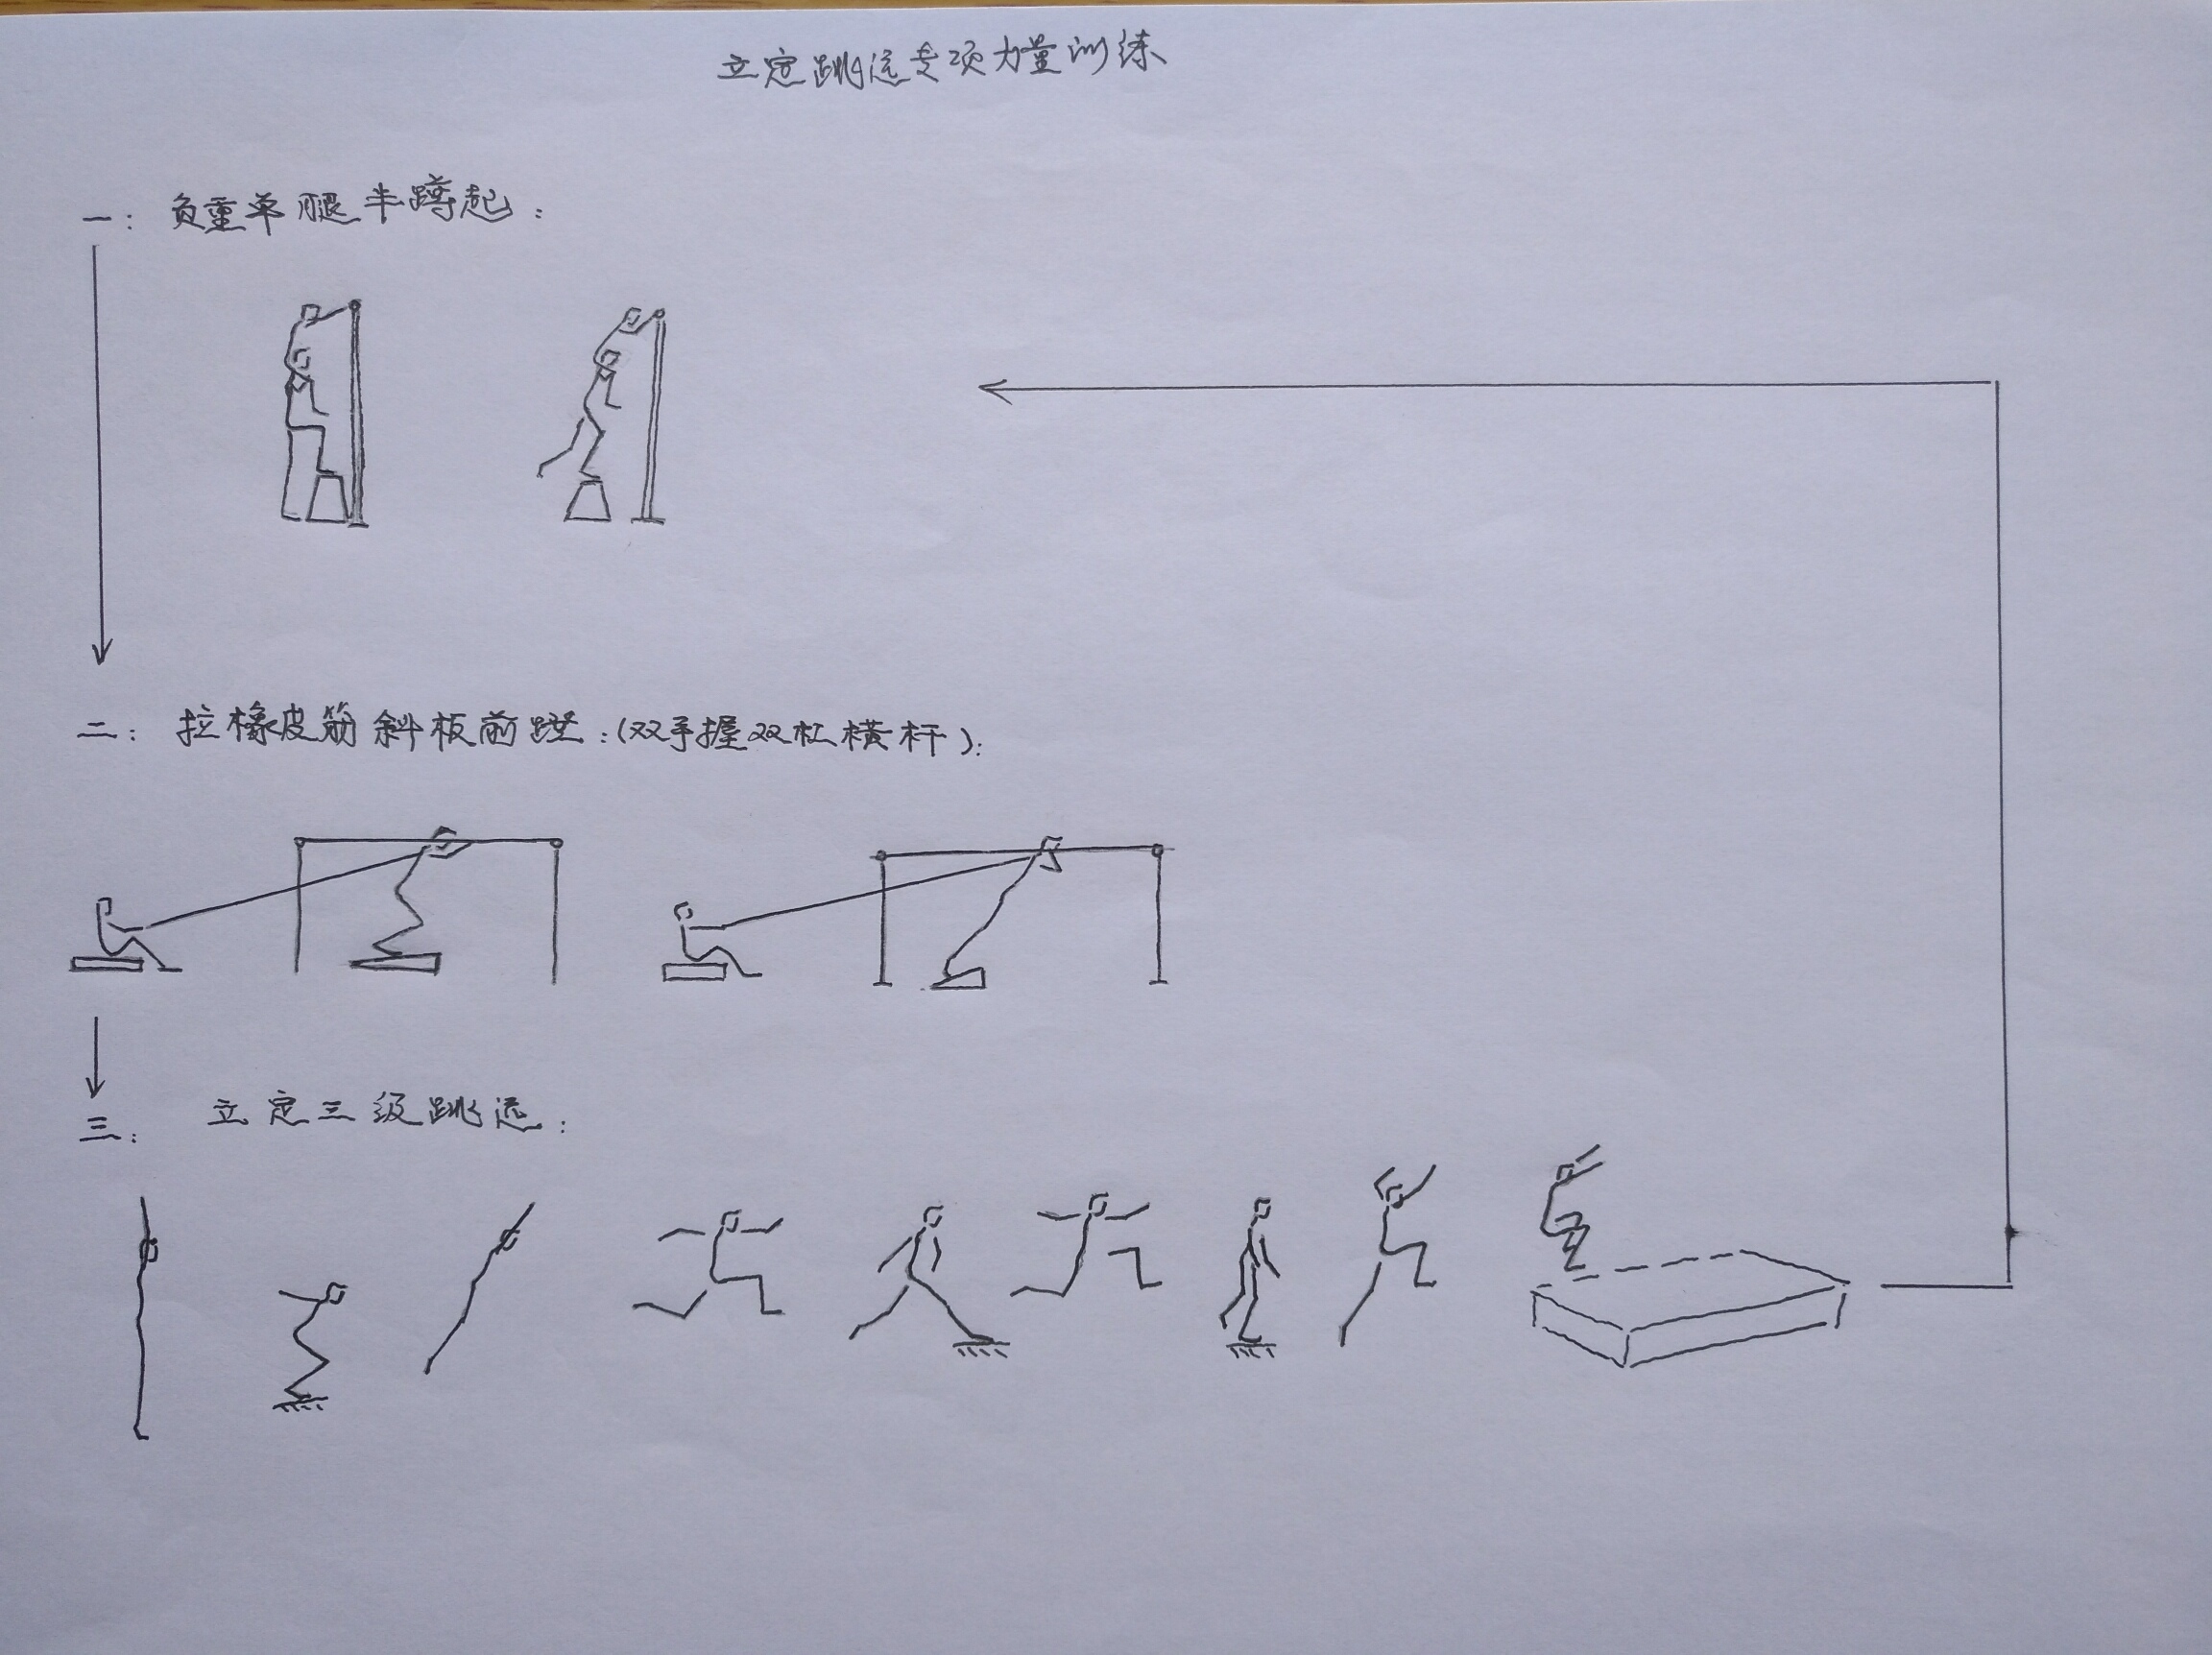 立定跳远专项力量训练
一：负重单腿半蹲起：
二：拉橡皮筋斜板前蹬：（双手握双杠横杆）：
三：立定三级跳远：